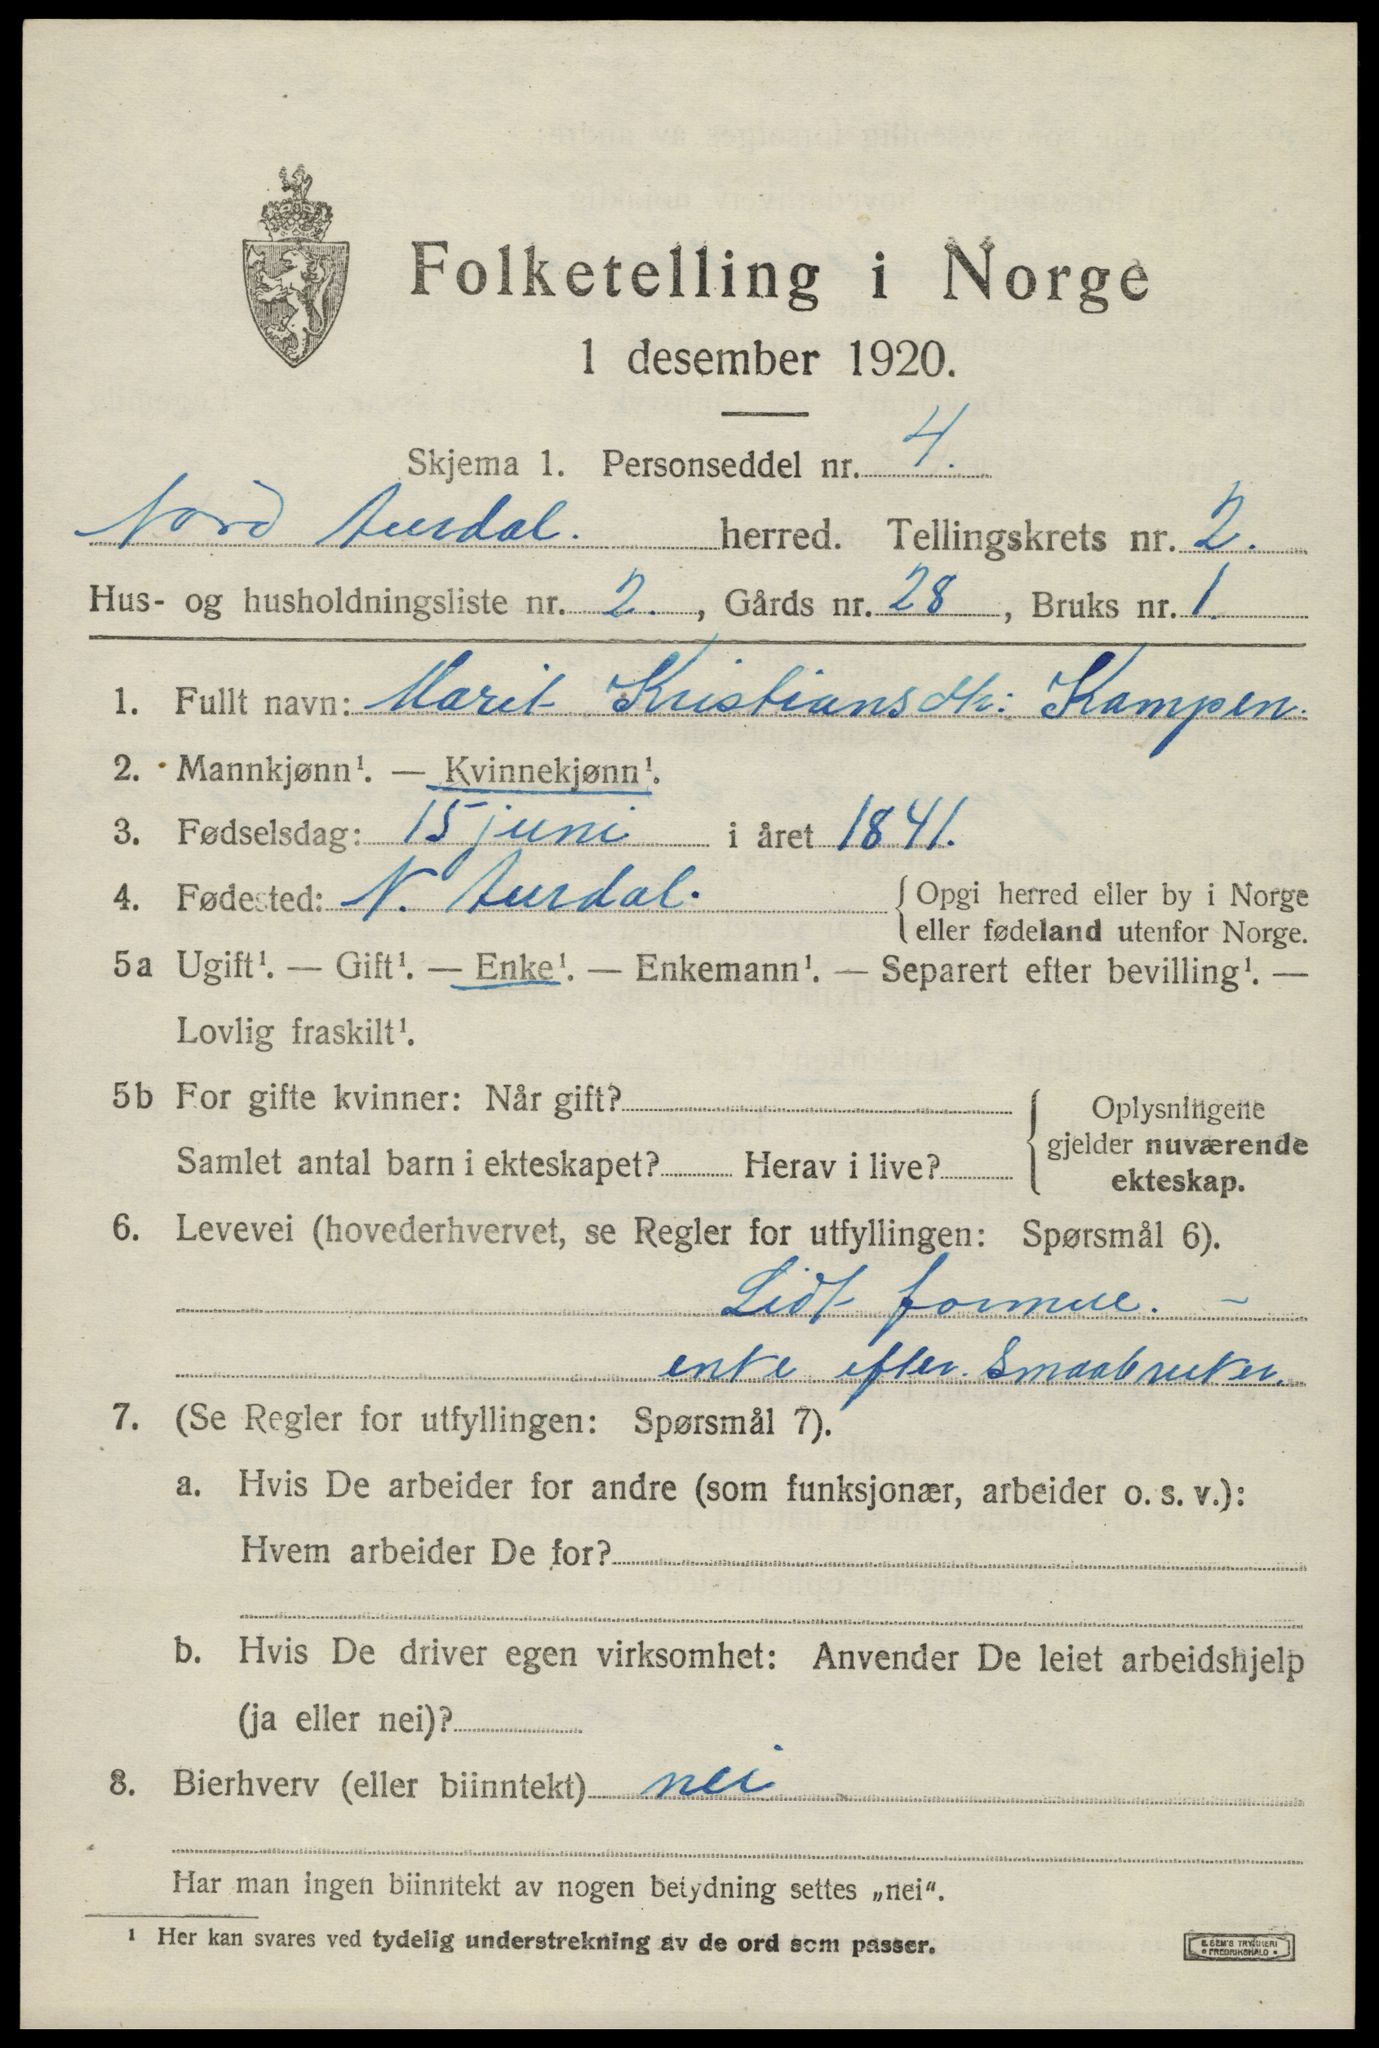 Folketelling i Norge
1 desember 1920.
Skjema 1. Personseddel nr. 4.
Nord Aurdal. herred. Tellingskrets nr. 2.
Hus- og husholdningsliste nr. 2., Gårds nr. 28, Bruks nr. 1.
1. Fullt navn: Marit Kristiansdtr: Kampen.
2. Mannkjønn¹. — Kvinnekjønn¹.
3. Fødselsdag: 15 juni i året 1841.
4. Fødested: N. Aurdal. { Opgi herred eller by i Norge
eller fødeland utenfor Norge.
5a Ugift¹. — Gift¹. — Enke¹. — Enkemann¹. — Separert efter bevilling¹. —
Lovlig fraskilt¹.
5b For gifte kvinner: Når gift? { Oplysningene
gjelder nuværende
Samlet antal barn i ekteskapet? Herav i live?
ekteskap.
6. Levevei (hovederhvervet, se Regler for utfyllingen: Spørsmål 6).
Lidt formue. –
enke efter. Smaabruker.
7. (Se Regler for utfyllingen: Spørsmål 7).
a. Hvis De arbeider for andre (som funksjonær, arbeider o. s. v.):
Hvem arbeider De for?
b. Hvis De driver egen virksomhet: Anvender De leiet arbeidshjelp
(ja eller nei)?
8. Bierhverv (eller biinntekt) nei
Har man ingen biinntekt av nogen betydning settes „nei“.
¹ Her kan svares ved tydelig understrekning av de ord som passer.
E. SEM'S TRYKKERI
• FREDRIKSHALD •